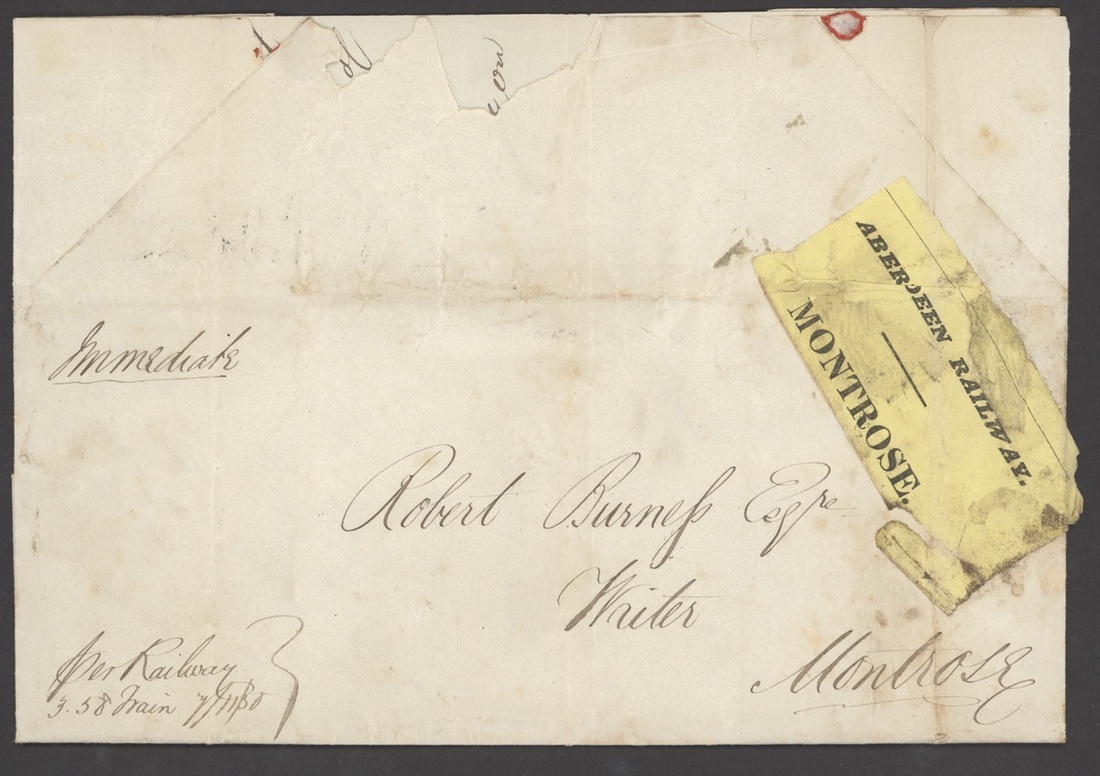 Immediate
Robert Burneſs Esqre
Writer
Montrose
per Railway
3.58 Train
ABERDEEN RAILWAY.
MONTROSE.